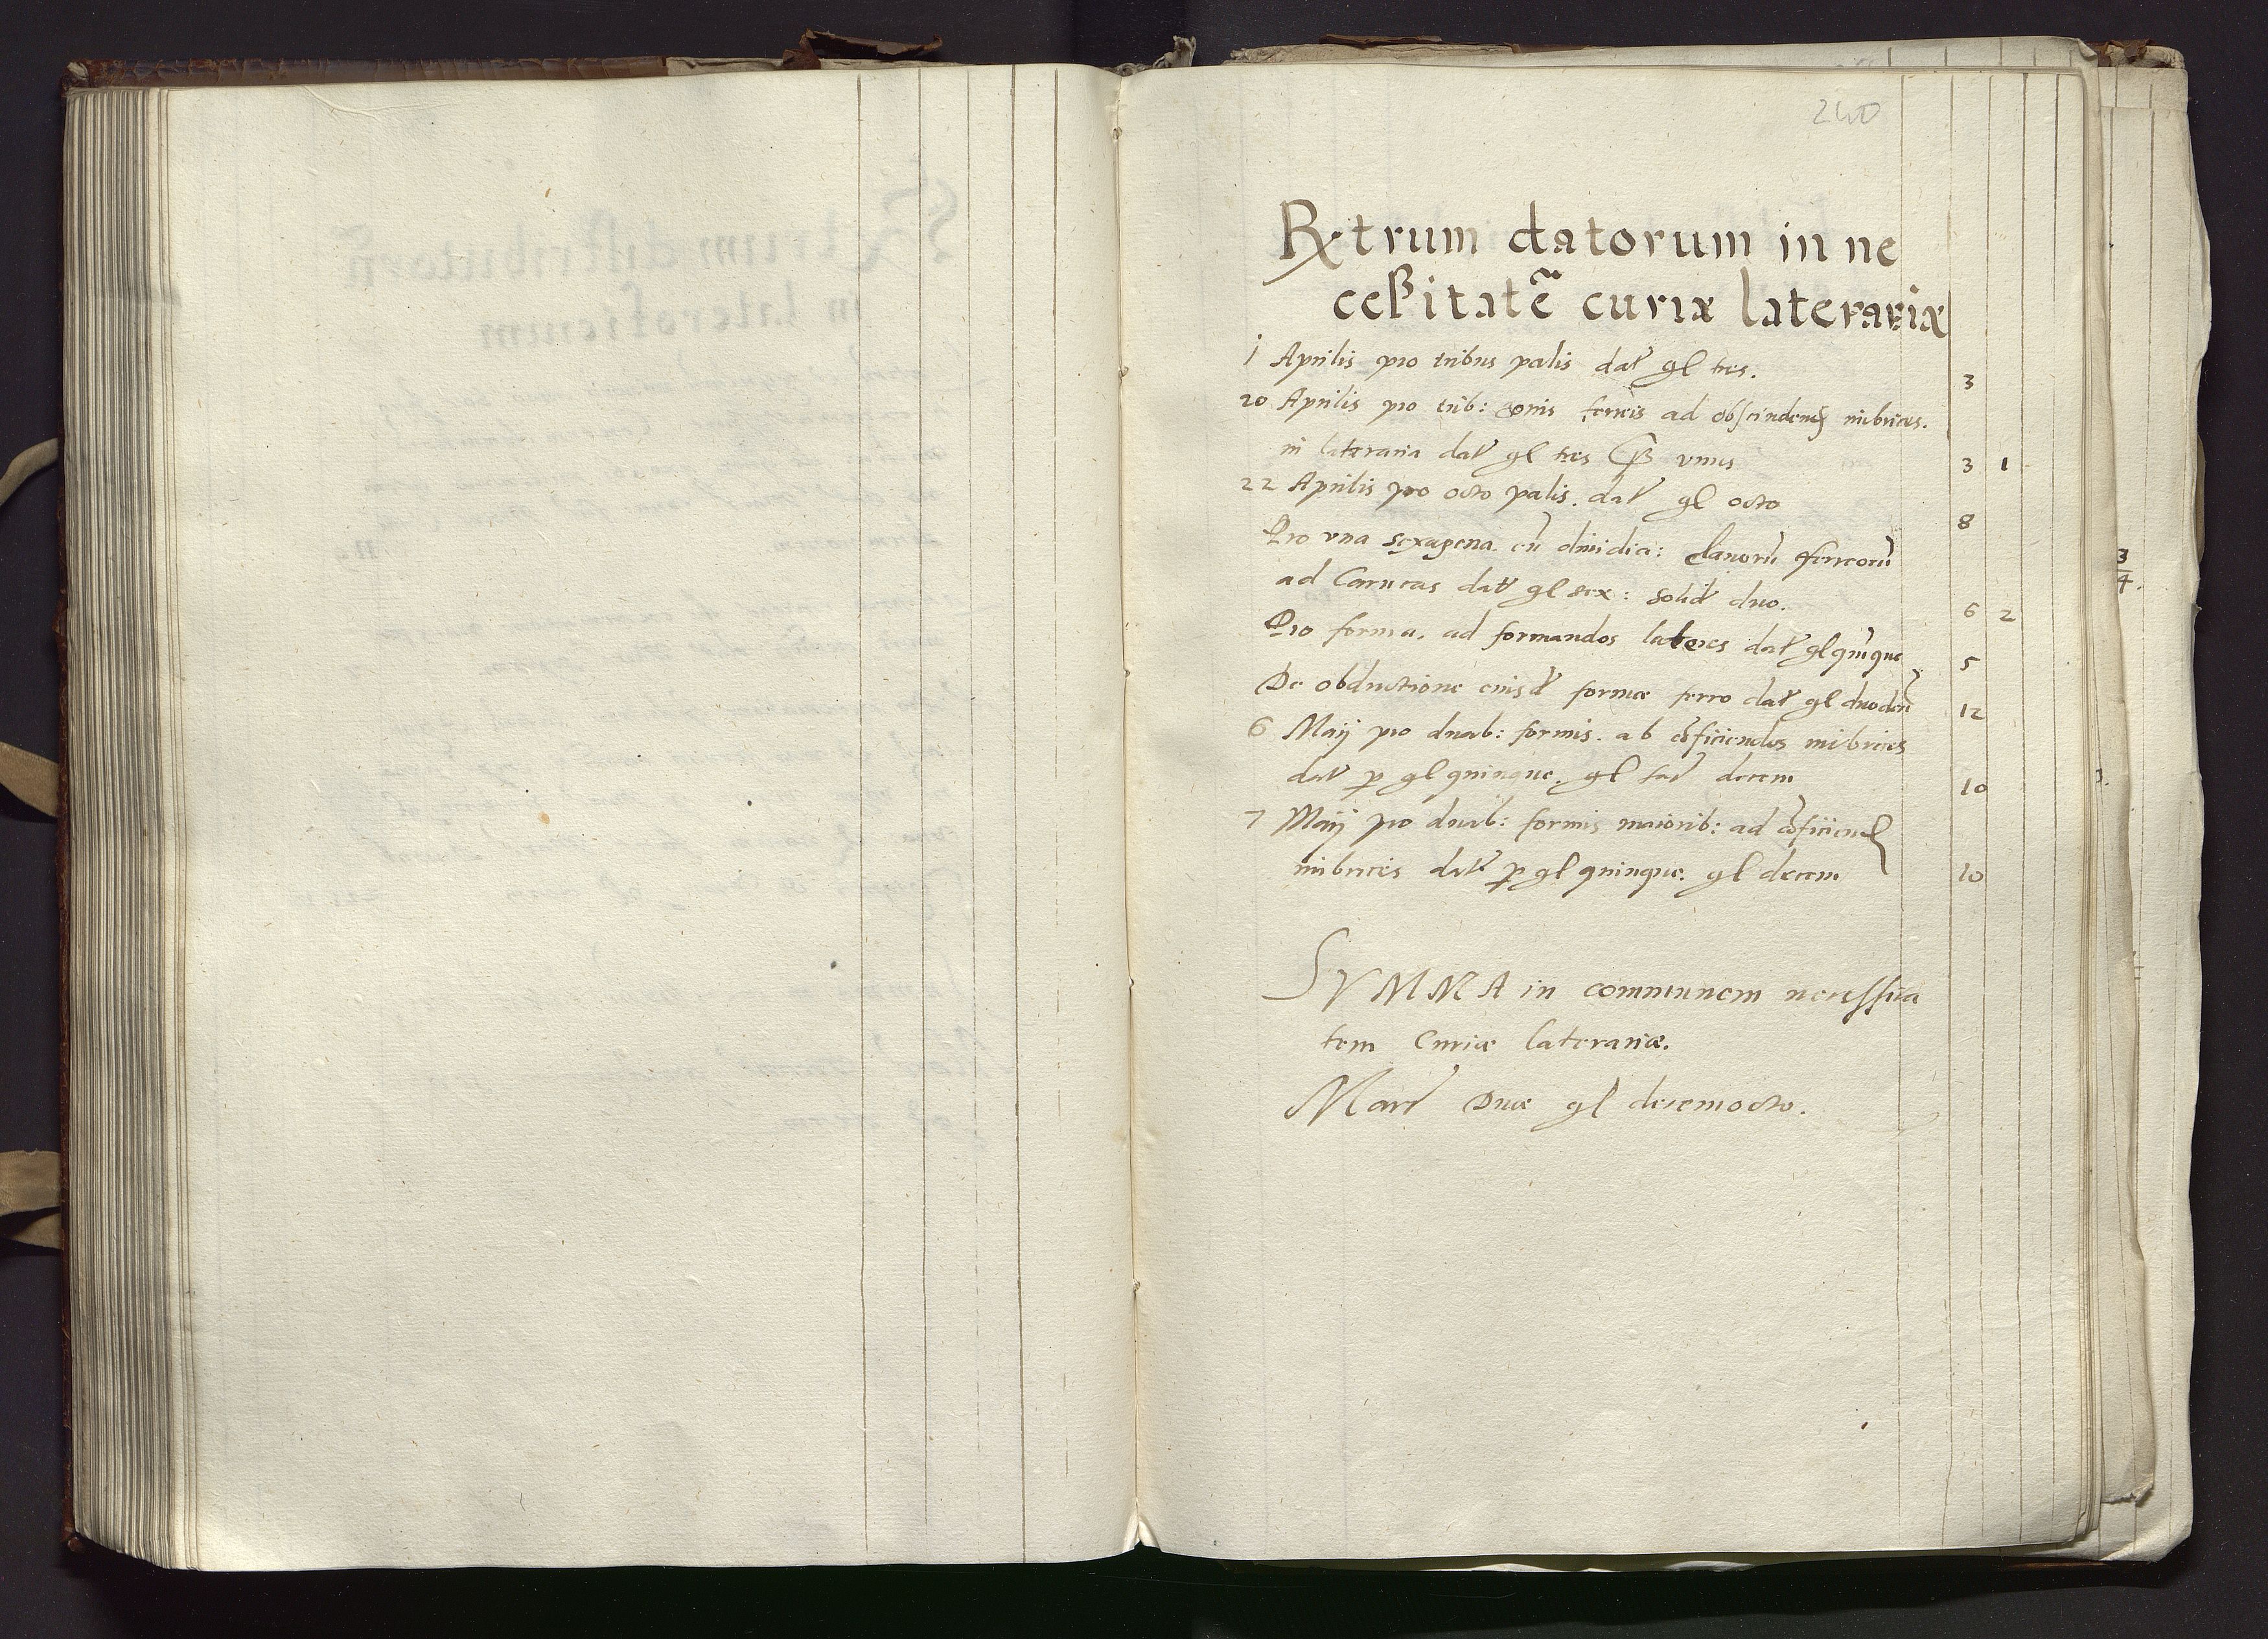 240
Rxtrum datorum in ne
ceßitatē curiæ laterariæ
1 Aprilis pro tribus palis dat gl tres. 3
20 Aprilis pro trib: ferreis ad obscindend imbrices.
in lateraria dat gl tres ß vnus 3 1
22 Aprilis pro octo palis. dat gl octo 8
Pro vna sexagena cū dimidia: clauorū ferreorū
ad Carucas dat gl sex: solid duo. 6 2
Pro forma. ad formandos lateres dat gl quinque 5
De obductione eiusd formæ ferro dat gl duodeci 12
6 Maij pro duab: formis. ab cōficiendos imbrices
dat p gl quinque. gl fac decem 10
7 Maij pro duab: formis maiorib: ad cōficiend
imbrices dat p gl quinque. gl decem 10
SVMMA in communem necessita
tem Curiæ laterariæ.
Marc Duæ gl decemocto.
3
4